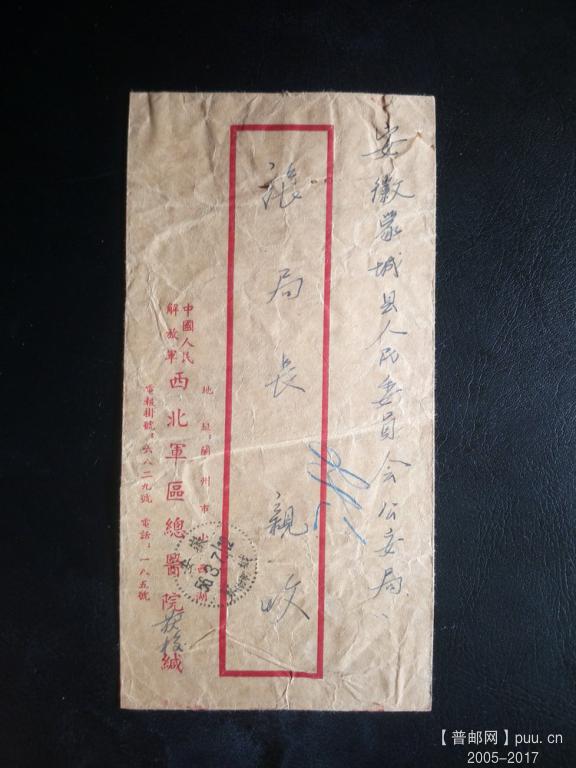 安徽蒙城县人民委员会公安局
张局长親收
地址:蘭州市小西湖
中國人民
解放軍
西北軍區總醫院
緘
電報掛號:六八二九號 電話:一八五號
56.3.7.12
【普邮网】puu.cn
2005-2017